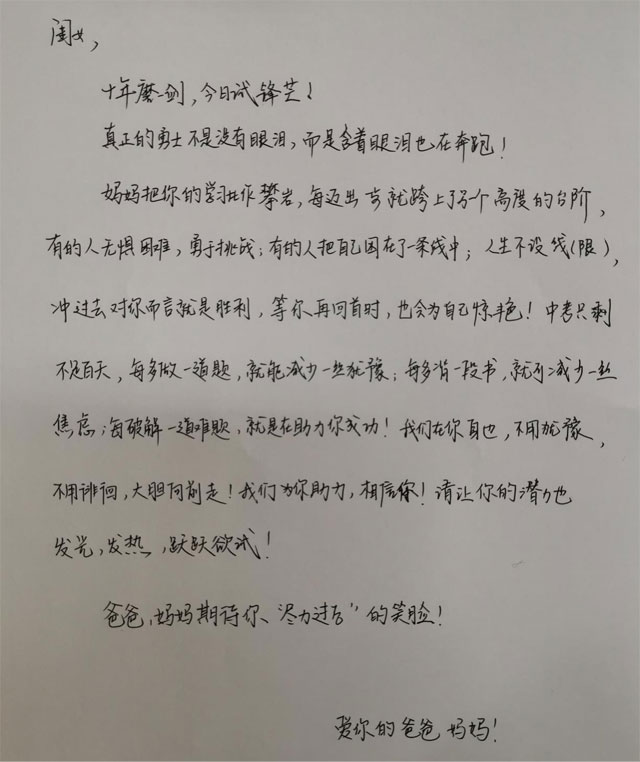 闺女，
十年磨一剑，今日试锋芒！
真正的勇士不是没有眼泪，而是含着眼泪也在奔跑！
妈妈把你的学习比作攀岩，每迈出 步就跨上了 个高度的台阶，
有的人无惧困难，勇于挑战；有的人把自己困在了一条线中；人生不设线(限)，
冲过去对你而言就是胜利，等你再回首时，也会为自己惊艳！中考只剩
不足百天，每多做一道题，就能减少一丝犹豫；每多背一段书，就可减少一丝
焦虑；每破解一道难题，就是在助力你成功！我们在你身边，不用犹豫，
不用徘徊，大胆向前走！我们为你助力，相信你！请让你的潜力也
发光，发热，跃跃欲试！
爸爸，妈妈期待你“尽力过后”的笑脸！
爱你的爸爸妈妈！